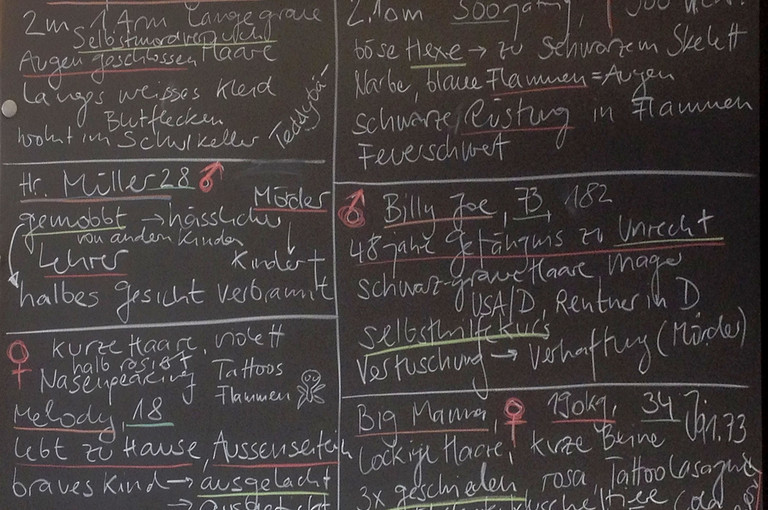 2m 1,40m lange graue
Selbstmordversuch
Augen geschlossen Haare
langes weisses Kleid
Blutflecken
wohnt im Schulkeller
Teddybä-
Hr. Müller 28 ♂
gemobbt → hässlicher Mörder
von andern Kindern
Lehrer Kinder †
halbes Gesicht verbrannt
♀ kurze Haare, violett
halb rasiert Tattoos
Flammen
Melody, 18
lebt zu Hause, Aussenseiterin
braves Kind → ausgelacht
2.10m 500 jährig,
böse Hexe → zu schwarzem Skelett
Narbe, blaue Flammen = Augen
schwarze Rüstung in Flammen
Feuerschwert
♂ Billy Joe, 73, 182
48 jahre Gefängnis zu Unrecht
schwarz-graue Haare, mager
USA/D, Rentner in D
Selbsthilfekurs
Vertuschung → Verhaftung (Mörder)
Big Mama, ♀ 190kg, 34
Lockige Haare, kurze Beine
3x geschieden rosa, Tattoo Lasagne